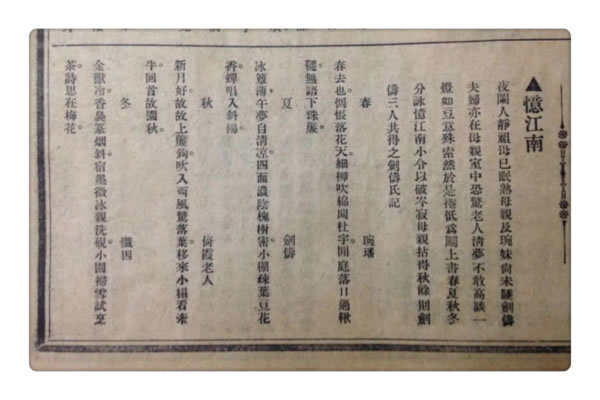 ▲憶江南
夜闌人靜祖母已眠熟母親及琬妹尙未睡劍儔
夫婦亦在母親室中恐驚老人清夢不敢高談一
燈如豆意殊索然於是捲低爲鬮上書春夏秋冬
分詠憶江南小令以破岑寂母親拈得秋餘則劍
儔三人共得之劍儔氏記
春 琬璠
春去也。惆悵落花天。細柳吹綿聞杜宇。閒庭落日過鞦
韆。無語下珠簾。
夏 劍儔
冰簟薄。午夢自清凉。四面濃陰槐樹密。小棚疎葉豆花
香。蟬唱入斜陽。
秋 倚霞老人
新月好。故故上簾鉤。吹入西風驚落葉。移來小榻看牽
牛。回首故園秋。
冬 懺因
金獸冷。香裊篆烟斜。宿墨微冰親洗硯。小園掃雪試烹
茶。詩思在梅花。